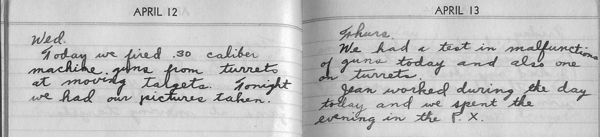 APRIL 12
Wed.
Today we fired .30 caliber
machine guns from turrets
at moving targets. Tonight
we had our pictures taken.
APRIL 13
Thurs.
We had a test in malfunctions
of guns today and also one
on turrets.
Jean worked during the day
today and we spent the
evening in the P.X.